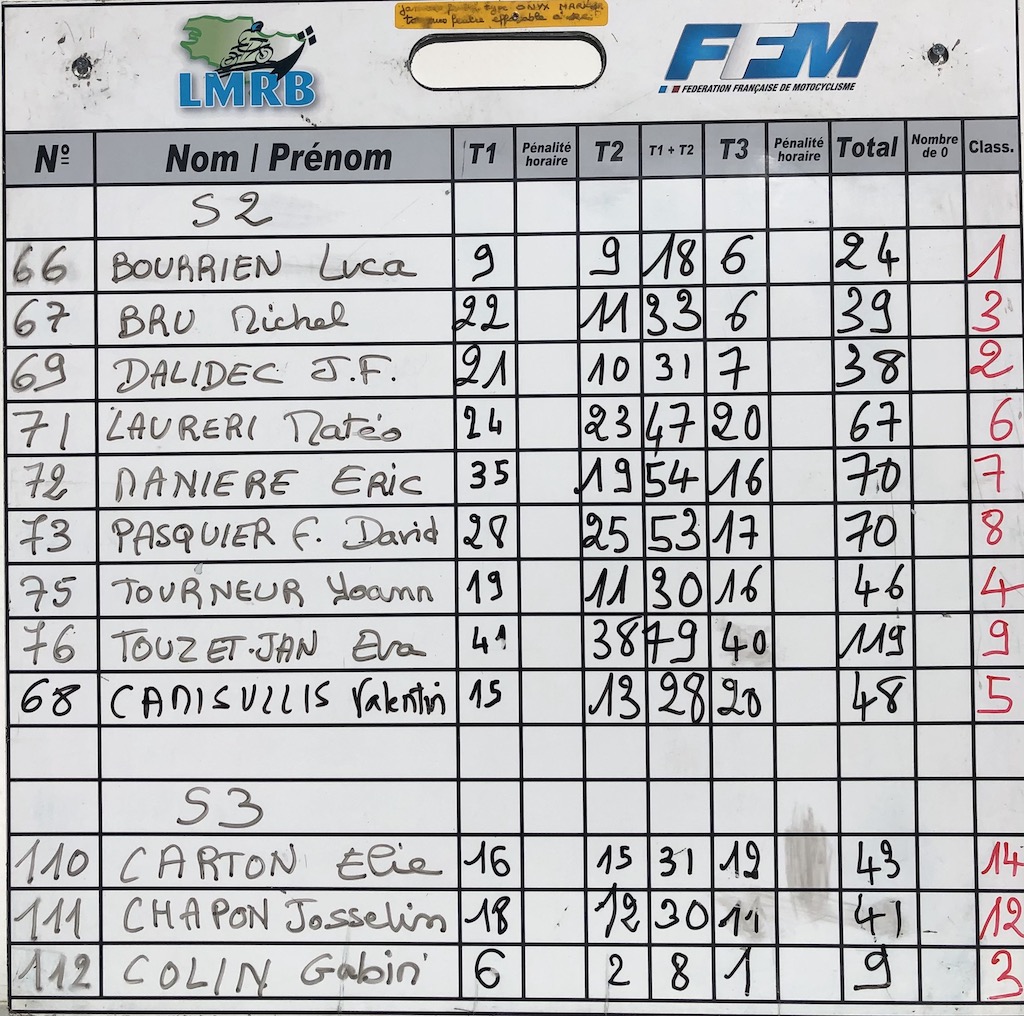 type ONYX MARKER
LMRB
FFM
FEDERATION FRANÇAISE DE MOTOCYCLISME
Nº Nom / Prénom T1 Pénalité horaire T2 T1 + T2 T3 Pénalité horaire Total Nombre de 0 Class.
S2
66 BOURRIEN Luca 9 9 18 6 24 1
67 BRU Michel 22 11 33 6 39 3
69 DALIDEC J.F. 21 10 31 7 38 2
71 LAURERI Matéo 24 23 47 20 67 6
72 MANIERE Eric 35 19 54 16 70 7
73 PASQUIER F. David 28 25 53 17 70 8
75 TOURNEUR Yoann 19 11 30 16 46 4
76 TOUZET-JAN Eva 41 38 79 40 119 9
68 CANISVLLIS Valentin 15 13 28 20 48 5
S3
110 CARTON Elie 16 15 31 12 43 14
111 CHAPON Josselin 18 12 30 11 41 12
112 COLIN Gabin 6 2 8 1 9 3